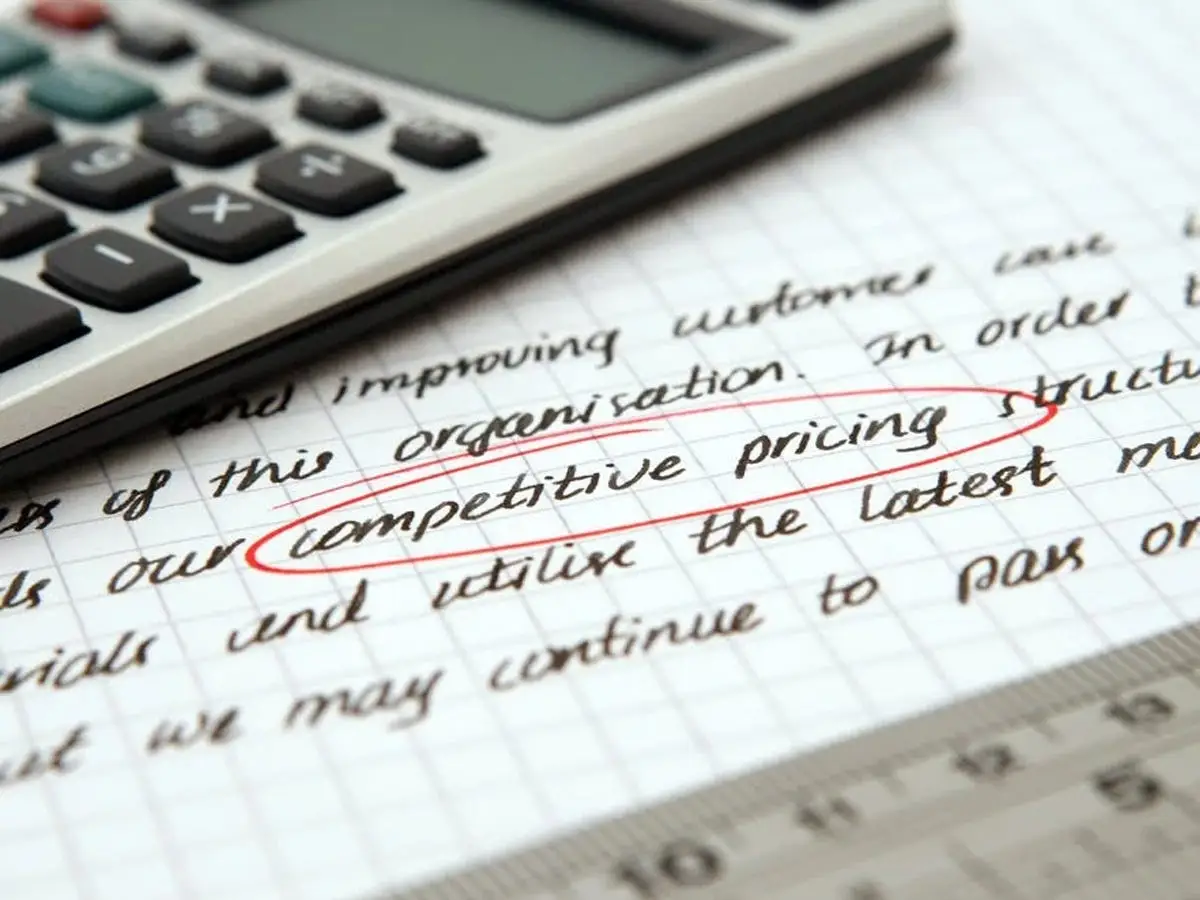 9
%
÷
×
−
and improving customer care
of this organisation. In order
our competitive pricing structu
and utilise the latest
ut we may continue to pass on
10 11 12 13
5